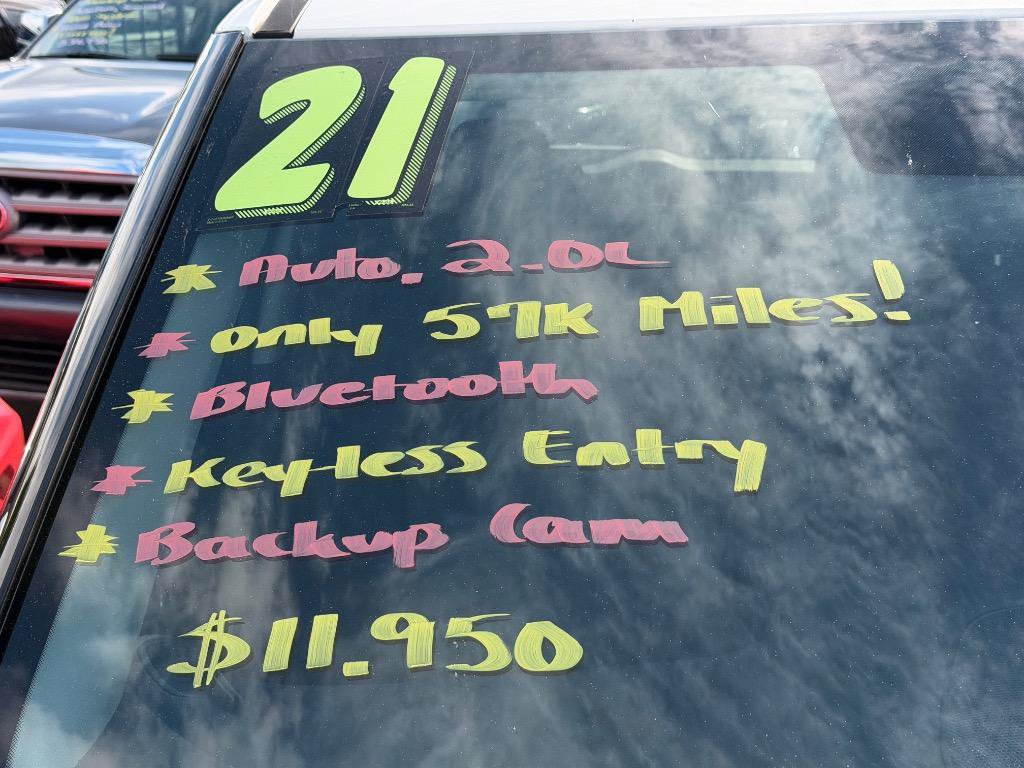 21
* Auto. 2.0L
* Only 59K Miles!
* Bluetooth
* Keyless Entry
* Backup Cam
$11.950